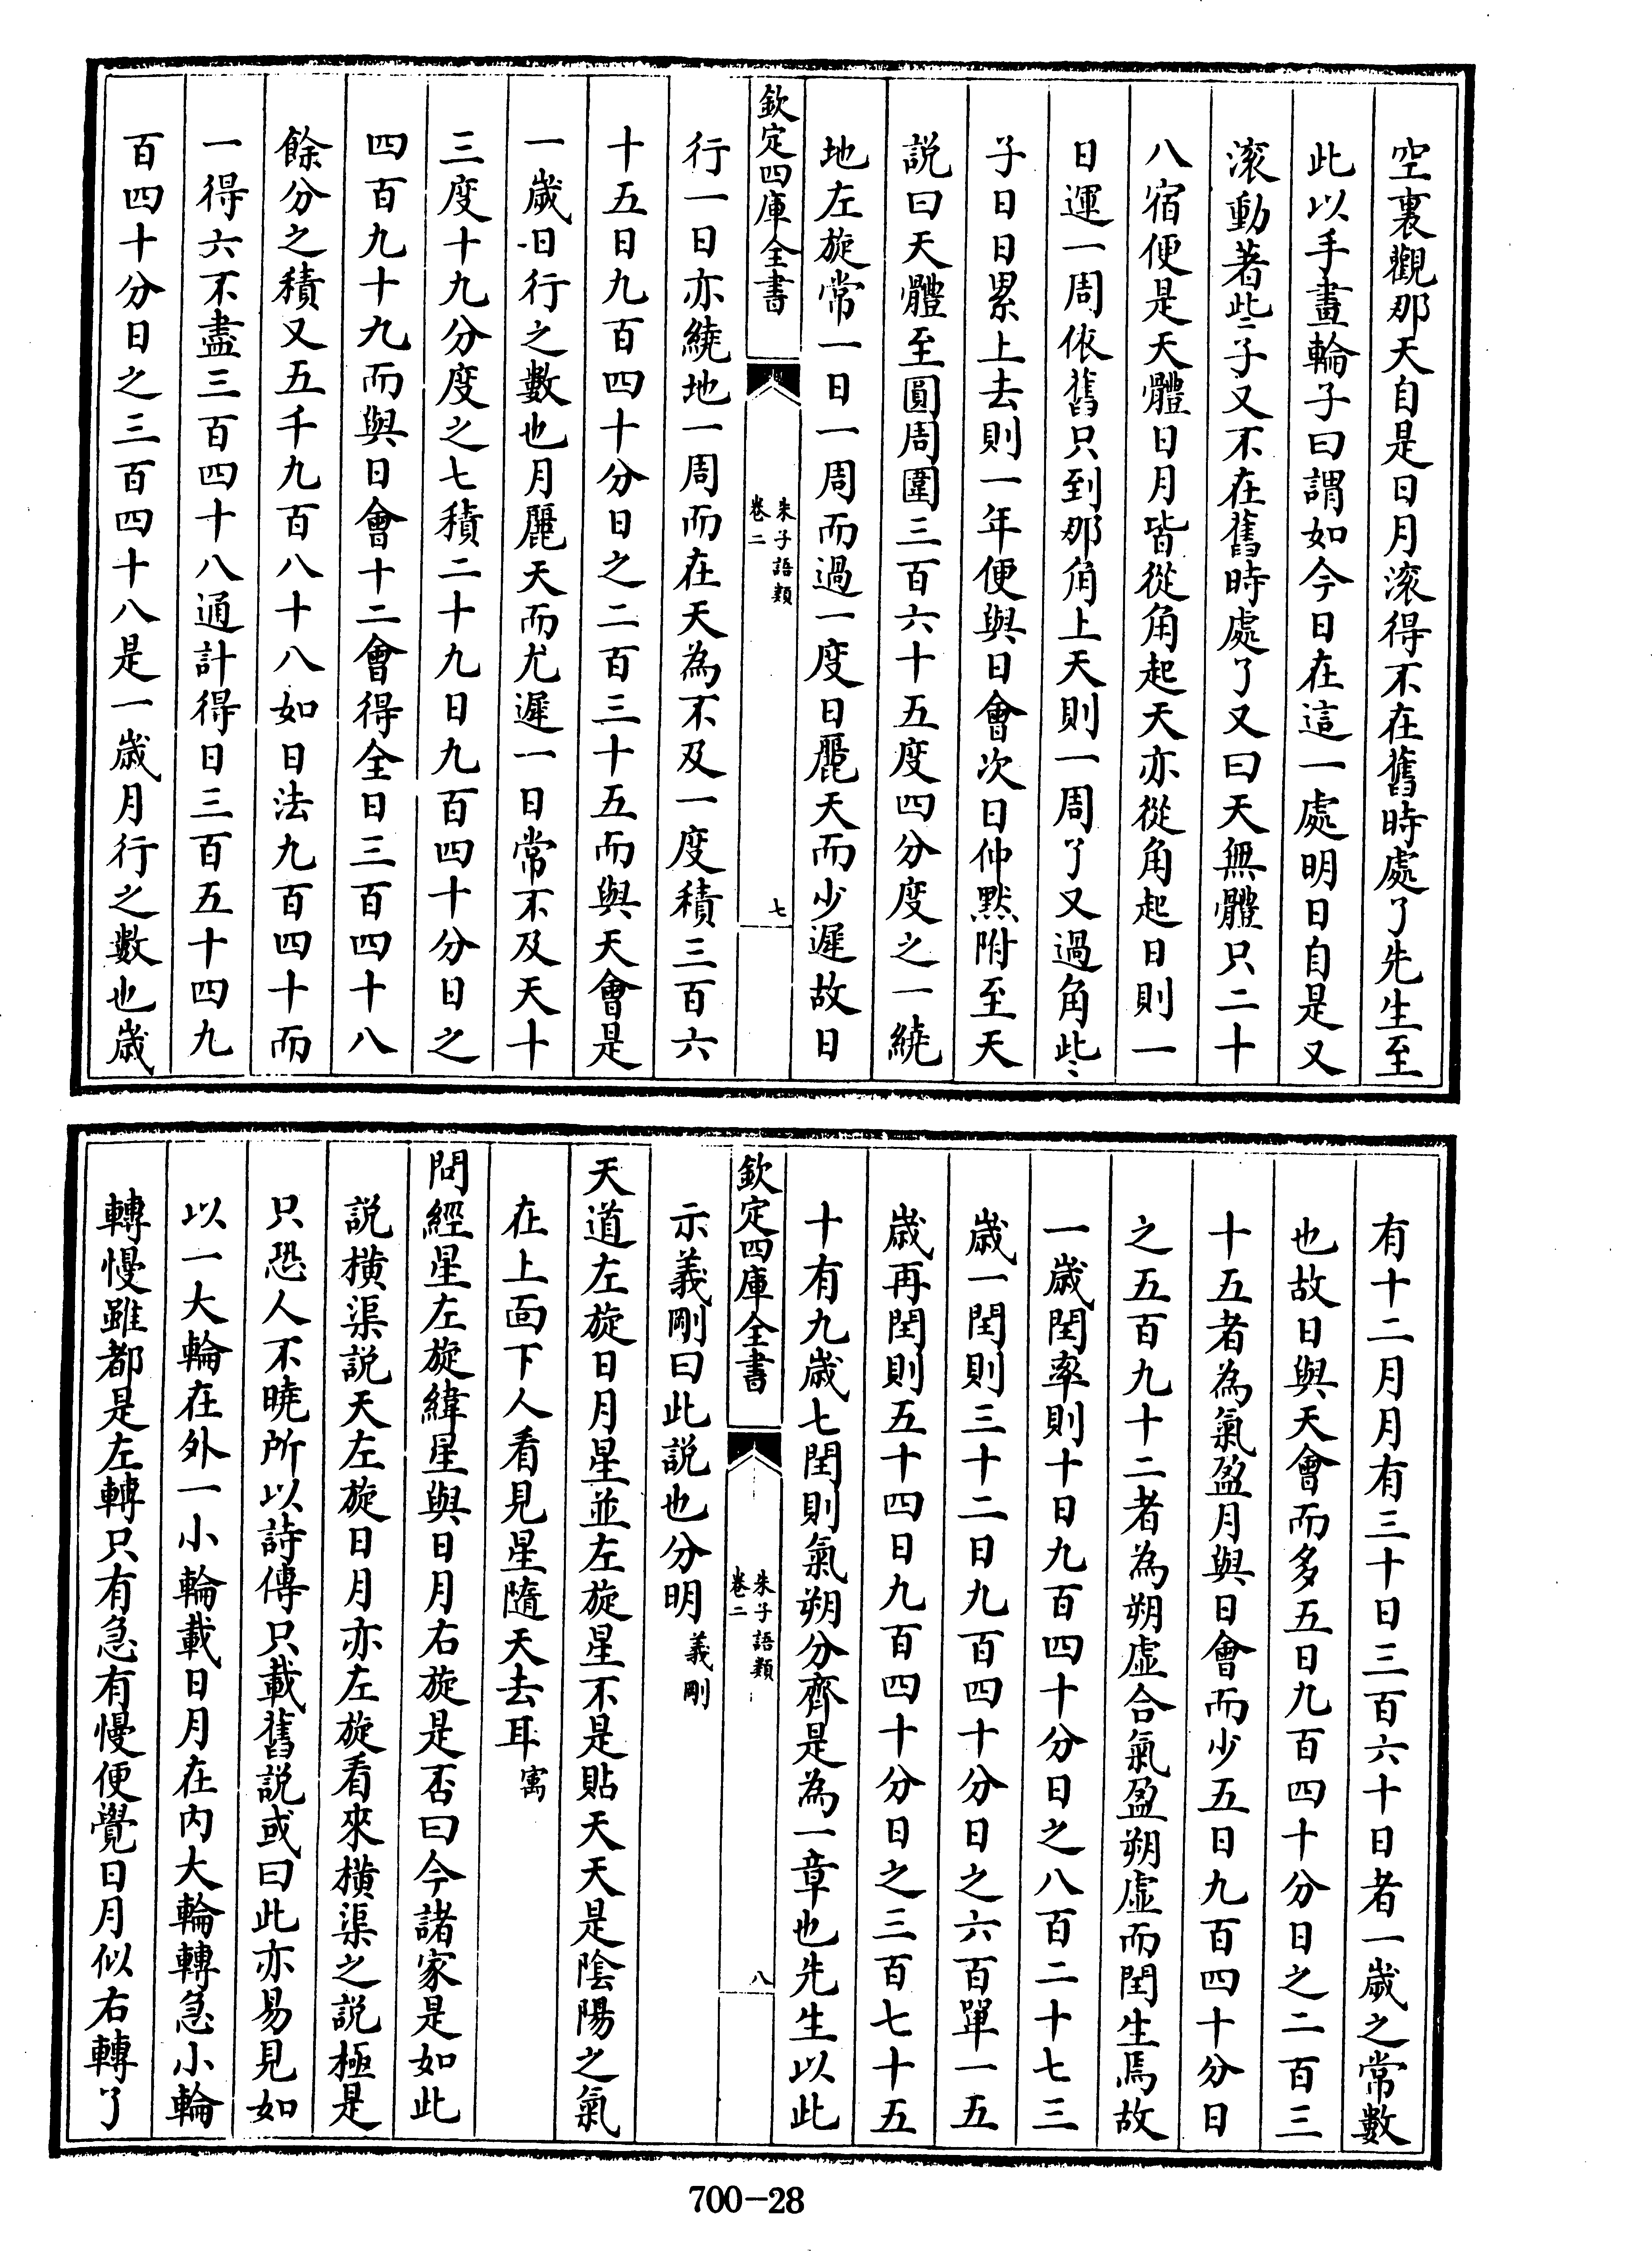 空裏觀那天自是日月滚得不在舊時處了先生至
此以手畫輪子曰謂如今日在這一處明日自是又
滚動著些子又不在舊時處了又曰天無體只二十
八宿便是天體日月皆從角起天亦從角起日則一
日運一周依舊只到那角上天則一周了又過角些
子日日累上去則一年便與日會次日仲黙附至天
説曰天體至圓周圍三百六十五度四分度之一繞
地左旋常一日一周而過一度日麗天而少遲故日
欽定四庫全書
朱子語類
卷二
七
行一日亦繞地一周而在天為不及一度積三百六
十五日九百四十分日之二百三十五而與天會是
一嵗日行之數也月麗天而尤遲一日常不及天十
三度十九分度之七積二十九日九百四十分日之
四百九十九而與日會十二會得全日三百四十八
餘分之積又五千九百八十八如日法九百四十而
一得六不盡三百四十八通計得日三百五十四九
百四十分日之三百四十八是一嵗月行之數也嵗
有十二月月有三十日三百六十日者一嵗之常數
也故日與天會而多五日九百四十分日之二百三
十五者為氣盈月與日會而少五日九百四十分日
之五百九十二者為朔虚合氣盈朔虚而閏生焉故
一嵗閏率則十日九百四十分日之八百二十七三
嵗一閏則三十二日九百四十分日之六百單一五
嵗再閏則五十四日九百四十分日之三百七十五
十有九嵗七閏則氣朔分齊是為一章也先生以此
欽定四庫全書
朱子語類
卷二
八
示義剛曰此説也分明 義剛
天道左旋日月星並左旋星不是貼天天是陰陽之氣
在上面下人看見星隨天去耳 㝢
問經星左旋緯星與日月右旋是否曰今諸家是如此
説横渠説天左旋日月亦左旋看來横渠之説極是
只恐人不曉所以詩傳只載舊説或曰此亦易見如
以一大輪在外一小輪載日月在内大輪轉急小輪
轉慢雖都是左轉只有急有慢便覺日月似右轉了
700-28